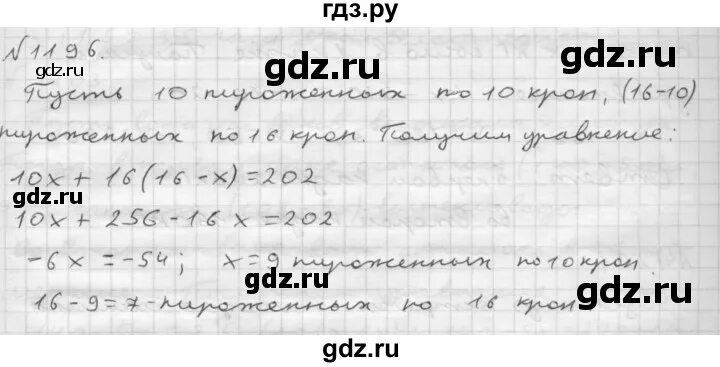 гдз.ру
№1196.
Пусть 10 пироженных по 10 крон, (16-10)
пироженных по 16 крон. Получим уравнение:
10x + 16(16-x)=202
10x + 256-16x=202
-6x = -54; x=9 пироженных по 10 крон
16-9=7-пироженных по 16 крон
gdz.ru
gdz.ru
gdz.ru
gdz.ru
gdz.ru
gdz.ru
gdz.ru